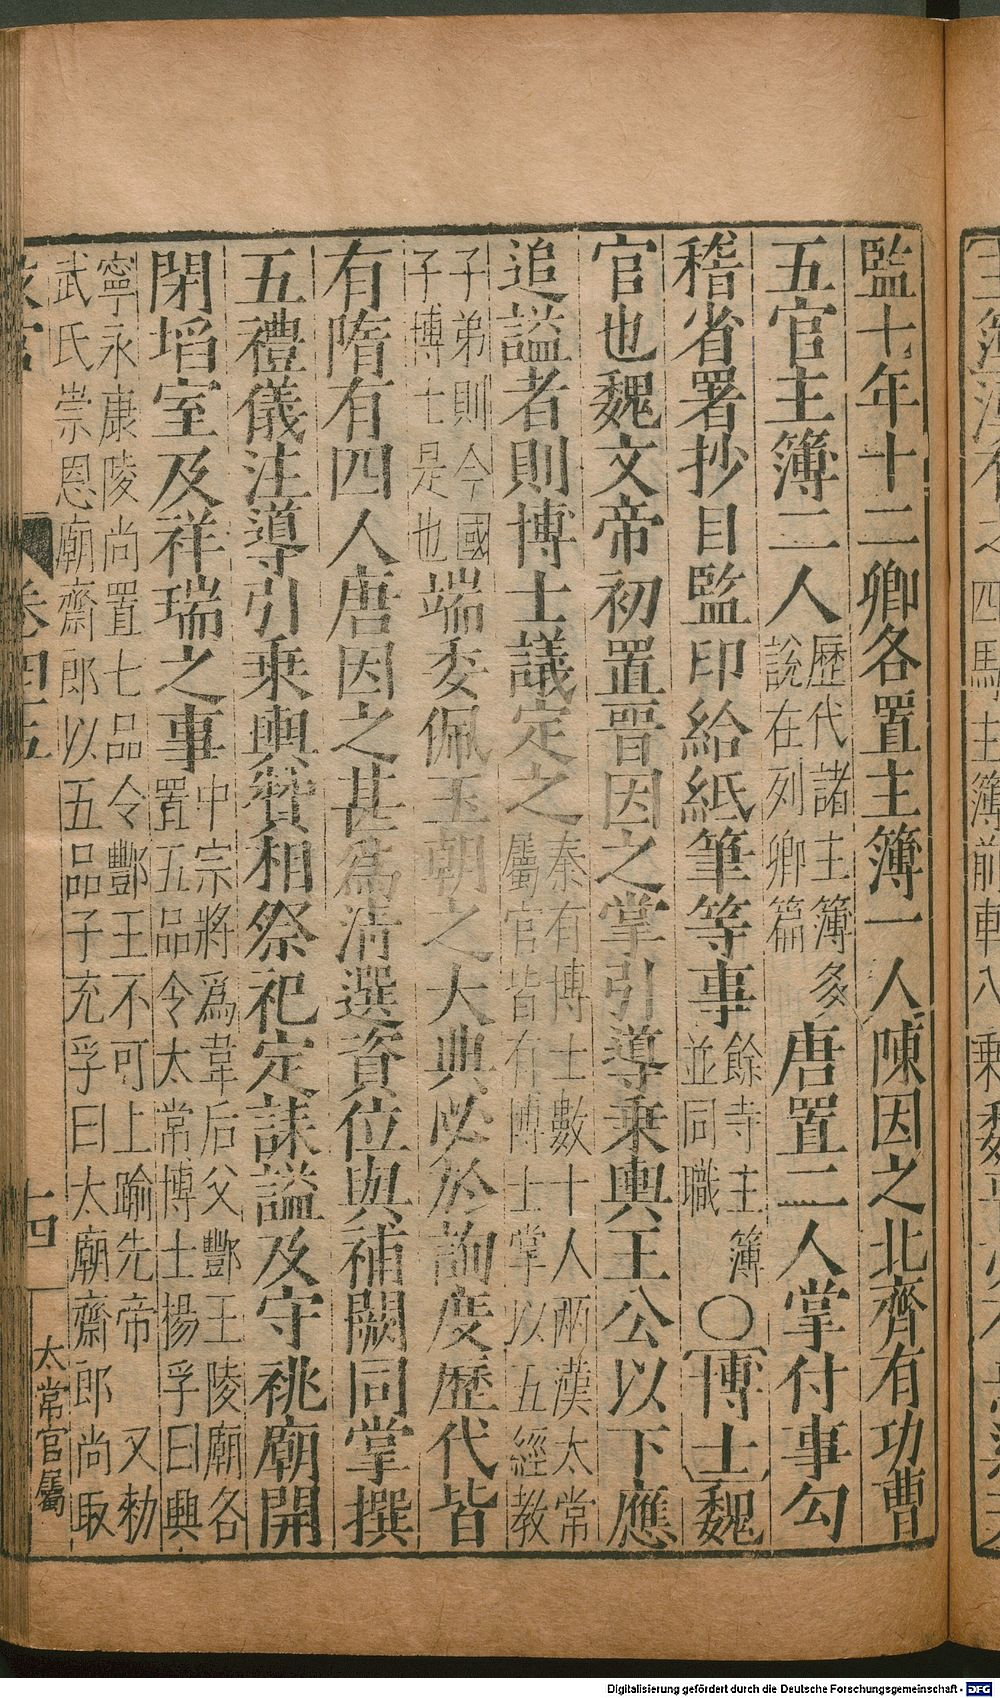 監七年十二卿各置主簿一人陳因之北齊有功曹
五官主簿二人歷代諸主簿多說在列卿篇唐置二人掌付事勾
稽省署抄目監印給紙筆等事餘寺主簿並同職○博士魏
官也魏文帝初置晉因之掌引導乗輿王公以下應
追謚者則博士議定之秦有博士數十人兩漢太常屬官皆有博士掌以五經教
子弟則今國子博士是也端委佩玉朝之大典必於詢度歷代皆
有隋有四人唐因之甚爲清選資位與補闕同掌撰
五禮儀注導引乗輿贊相祭祀定誄謚及守祧廟開
閉埳室及祥瑞之事中宗將爲韋后父酆王陵廟各置五品令太常博士楊孚曰興
寧永康陵尚置七品令酆王不可上踰先帝又勑
武氏崇恩廟齋郎以五品子充孚曰太廟齋郎尚取
卷 十四 太常官屬
Digitalisierung gefördert durch die Deutsche Forschungsgemeinschaft - DFG